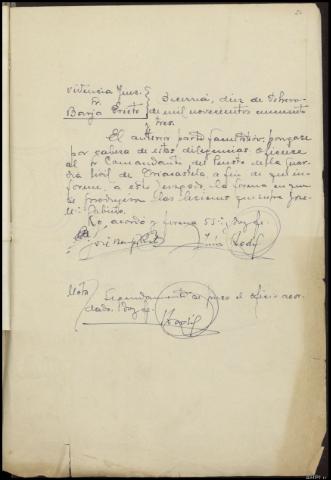 Juez
Sr
Barja Prieto
diez de Febrero
de mil novecientos cincuenta
tres.
El anterior parte facultativo, póngase
por cabeza de estas diligencias oficiese
al Sr Comandante del Puesto de la Guar-
dia Civil de Triacastela a fin de que in-
forme a este Juzgado, la forma en que
se produjeron las lesiones que sufre José
Lo acordó y firma SSª; doy fe.
José Barja
Nota
Seguidamente se puso el oficio acor-
dado. Doy fe.